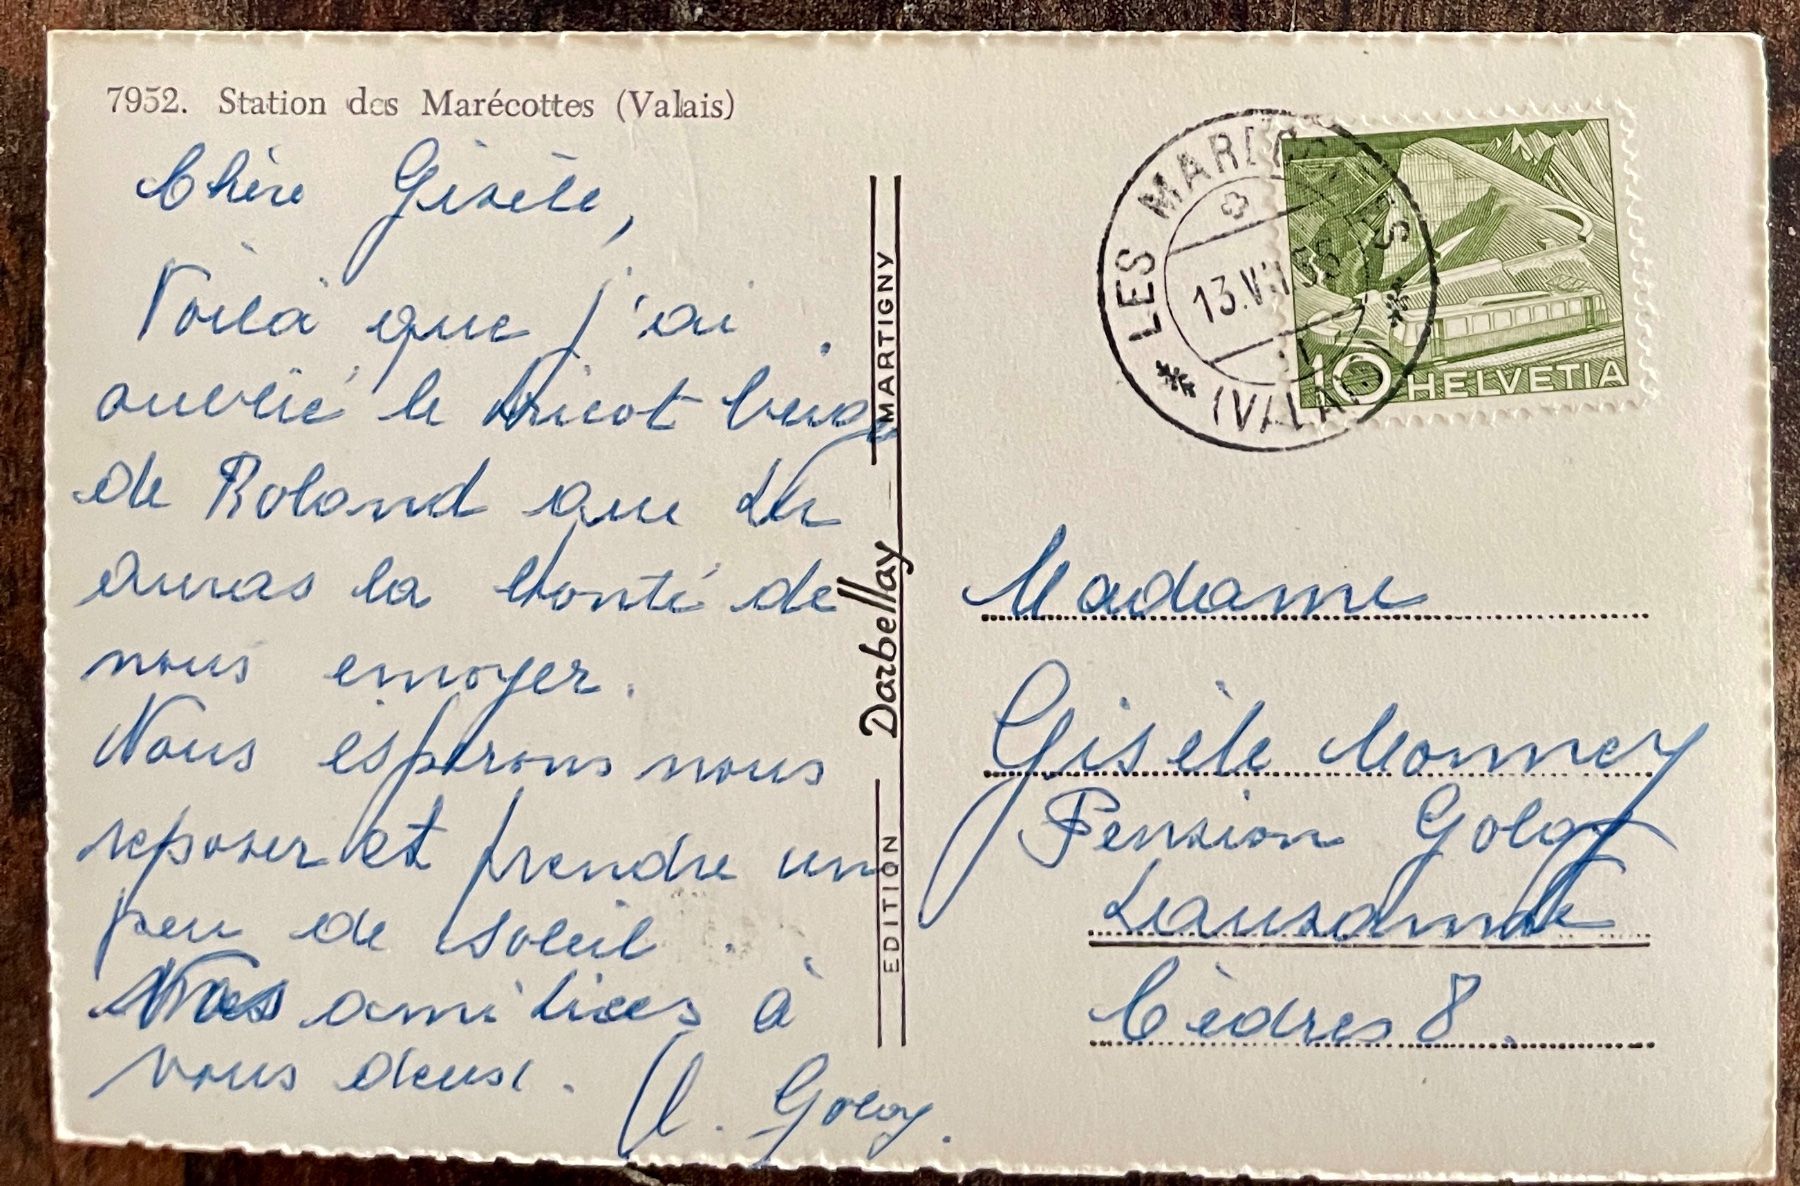 7952. Station des Marécottes (Valais)
Chère Gisèle,
Voilà que j'ai
oublié le tricot beige
de Roland que tu
auras la bonté de
nous envoyer.
Nous espérons nous
reposer et prendre un
peu de soleil.
Nos amitiés à
vous deux.
Golay.
EDITION Darbellay MARTIGNY
LES MARECOTTES
(VALAIS)
10 HELVETIA
Madame
Gisèle Monney
Pension Golay
Lausanne
Cèdres 8.